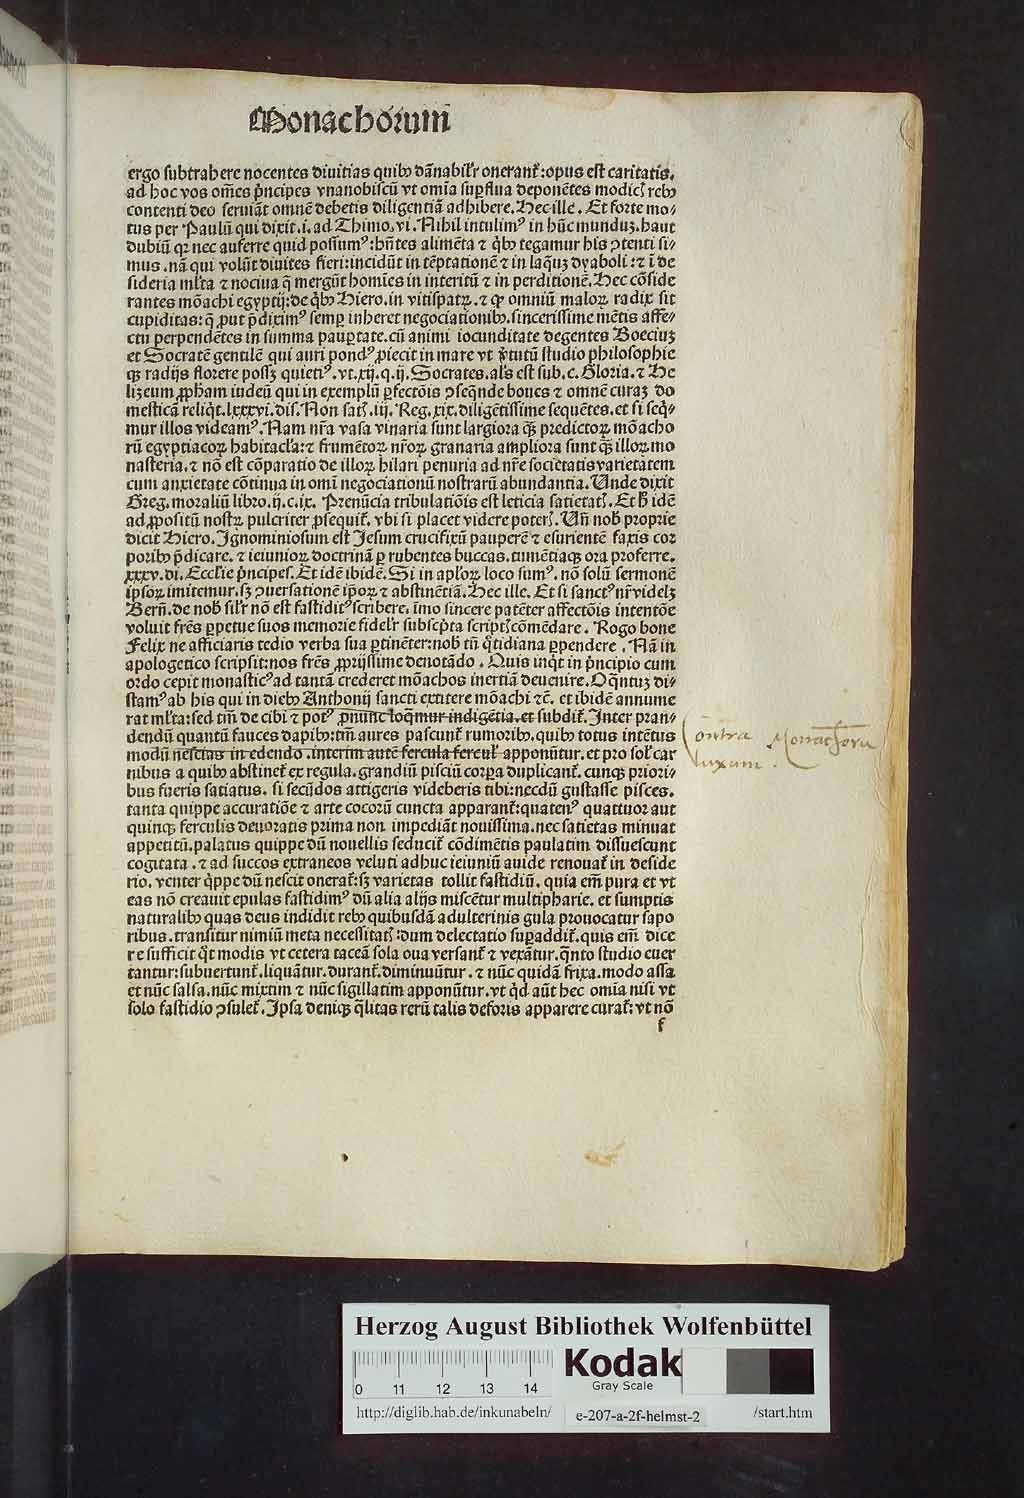 Monachorum
ergo subtrahere nocentes diuitias quibꝰ dānabilʳr onerant̄: opus est caritatis.
ad hoc vos om̄es p̄ncipes vnanobiscū vt om̄ia sup̱flua deponētes modicꝭ rebꝰ
contenti deo seruiāt omnē debetis diligentiā adhibere. Hec ille. Et forte mo⸗
tus per Paulū qui dixit .i. ad Thimo. vi. Nihil intulimꝰ in hūc munduꝫ. haut
dubiū qꝛ nec auferre quid possumꝰ: hn̄tes alimēta ⁊ qͥbꝰ tegamur his ꝯtenti si⸗
mus. nā qui volūt diuites fieri: incidūt in tēptationē ⁊ in laq̄uꝫ dyaboli: ⁊ ī de
sideria ml̄ta ⁊ nociua q̄ mergūt homīes in interitū ⁊ in perditionē. Hec cōside
rantes mōachi egyptij: de qͥbꝰ Hiero. in vitispatꝝ. ⁊ qꝙ omniū maloꝝ radix sit
cupiditas: q̄ ꝓut p̄diximꝰ semꝑ inheret negociationibꝰ. sincerissime mētis affe⸗
ctu perpendētes in summa pauꝑtate. cū animi iocunditate degentes Boeciuꝫ
et Socratē gentilē qui auri pondꝰ ꝓiecit in mare vt v̓tutū studio philosophie
qꝫ radijs florere possꝫ quietiꝰ. vt .xij. q. ij. Socrates. al̓s est sub. c. Gloria. ⁊ He
lizeum ꝓph̄am iudeū qui in exemplū ꝑfectōis ꝯseq̄nde boues ⁊ omnē curaꝫ do
mesticā reliqͥt. lxxxvi. dis. Non satꝭ. iij. Reg. xix. diligētissime sequētes. et si seq̄⸗
mur illos videamꝰ. Nam nr̄a vasa vinaria sunt largiora qꝫ predictoꝝ mōacho
rū egyptiacoꝝ habitacl̓a: ⁊ frumētoꝝ nr̄oꝝ granaria ampliora sunt qꝫ illoꝝ mo
nasteria. ⁊ nō est cōparatio de illoꝝ hilari penuria ad nr̄e societatis varietatem
cum anxietate cōtinua in omī negociationū nostrarū abundantia. Unde dixit
Greg. moraliū libro. ij. c. ix. Prenūcia tribulatiōis est leticia satietatꝭ. Et h̓ idē
ad ꝓpositū nostꝝ pulcriter ꝓsequit̄. vbi si placet videre poterꝭ. Un̄ nob̓ proprie
dicit Hiero. Ignominiosum est Jesum crucifixū pauperē ⁊ esurientē faxis cor
poribꝰ p̄dicare. ⁊ ieiunioꝝ doctrinā ꝑ rubentes buccas. tumētiaqꝫ ora proferre.
xxxv. di. Eccl̓ie p̄ncipes. Et idē ibidē. Si in apl̓oꝝ loco sumꝰ. nō solū sermonē
ip̄soꝝ imitemur. sꝫ ꝯuersationē ip̄oꝝ ⁊ abstinētiā. Hec ille. Et si sanctꝰ nr̄ videlꝫ
Bern̄. de nob̓ sil̓r nō est fastiditꝰ scribere. īmo sincere patēter affectōis intentōe
voluit fr̄es ꝑpetue suos memorie fidel̓r subscp̄ta scriptꝭ cōmēdare. Rogo bone
Felix ne afficiaris tedio verba sua ꝑtinēter: nob̓ tū qͥtidiana ꝑpendere. Nā in
apologetico scripsit: nos fr̄es ꝓprijssime denotādo. Quis inqͥt in p̄ncipio cum
ordo cepit monasticꝰ ad tantā crederet mōachos inertiā deuenire. O q̄ntuꝫ di⸗
stamꝰ ab his qui in diebꝰ Anthonij sancti extitere mōachi ⁊c̄. et ibidē annume
rat ml̓ta: sed tm̄ de cibi ⁊ potꝰ ꝓnunc loq̄mur indigētia. et subdit̄. Inter pran⸗
dendū quantū fauces dapibꝰ: tm̄ aures pascunt̄ rumoribꝰ. quibꝰ totus intētus
modū nescias in edendo. interim autē fercula fercul̓ apponūtur. et pro sol̓ car
nibus a quibꝰ abstinet̄ ex regula. grandiū pisciū corꝑa duplicant̄. cunqꝫ priori⸗
bus fueris satiatus. si secūdos attigeris videberis tibi: necdū gustasse pisces.
tanta quippe accuratiōe ⁊ arte cocorū cuncta apparant̄: quatenꝰ quattuor aut
quinqꝫ ferculis deuoratis prima non impediāt nouissima. nec satietas minuat
appetitū. palatus quippe dū nouellis seducit̄ cōdimētis paulatim dissuescunt
cogitata. ⁊ ad succos extraneos veluti adhuc ieiuniū auide renouat̄ in deside
rio. venter qͥppe dū nescit onerat̄: sꝫ varietas tollit fastidiū. quia em̄ pura et vt
eas nō creauit epulas fastidimꝰ dū alia alijs miscētur multipharie. et sumptis
naturalibꝰ quas deus indidit rebꝰ quibusdā adulterinis gula prouocatur sapo
ribus. transitur nimiū meta necessitatꝭ: dum delectatio suꝑaddit̄. quis em̄ dice
re sufficit qͥt modis vt cetera taceā sola oua versant̄ ⁊ vexātur. q̄nto studio euer
tantur: subuertunt̄. liquātur. durant̄. diminuūtur. ⁊ nūc quidā frixa. modo assa
et nūc salsa. nūc mixtim ⁊ nūc sigillatim apponūtur. vt qͥd aūt hec om̄ia nisi vt
solo fastidio ꝯsulet̄. Ipsa deniqꝫ q̄litas rerū talis deforis apparere curat̄: vt nō
f
Contra Monachorū
luxum.
Herzog August Bibliothek Wolfenbüttel
0 11 12 13 14
Kodak
Gray Scale
http://diglib.hab.de/inkunabeln/ e-207-a-2f-helmst-2 /start.htm